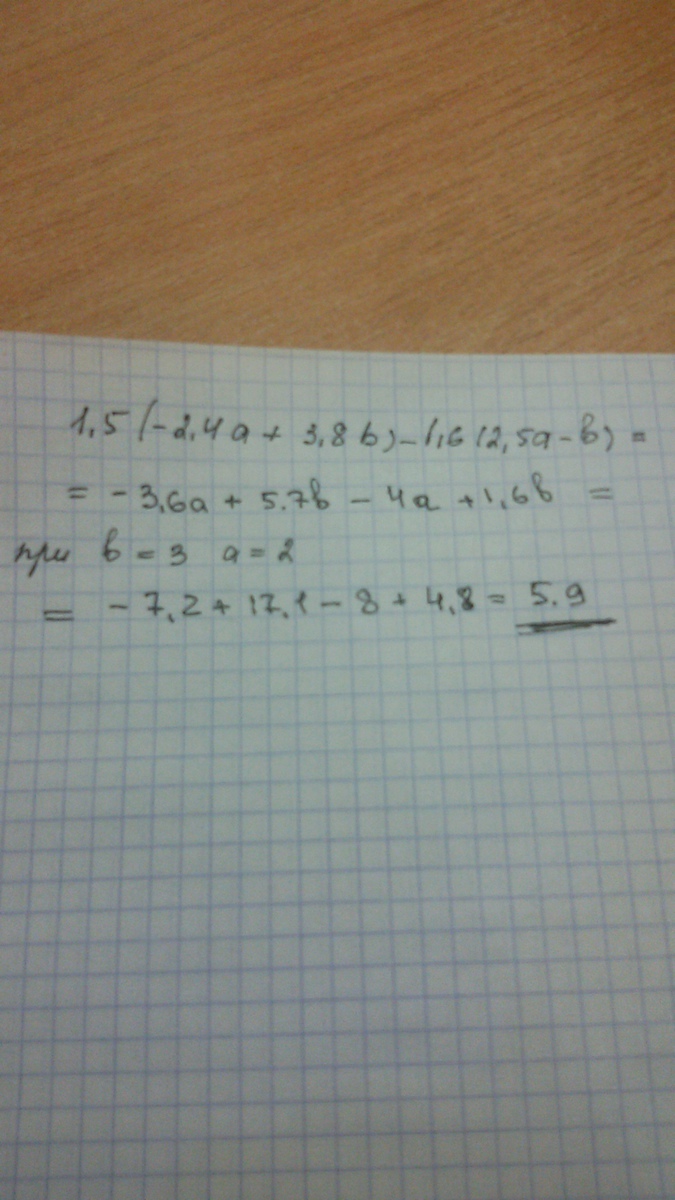 1,5 (-2,4a + 3,8 b) - 1,6 (2,5a - b) =
= - 3,6a + 5.7b - 4a + 1,6b =
при b = 3 a = 2
= - 7,2 + 17,1 - 8 + 4,8 = 5.9